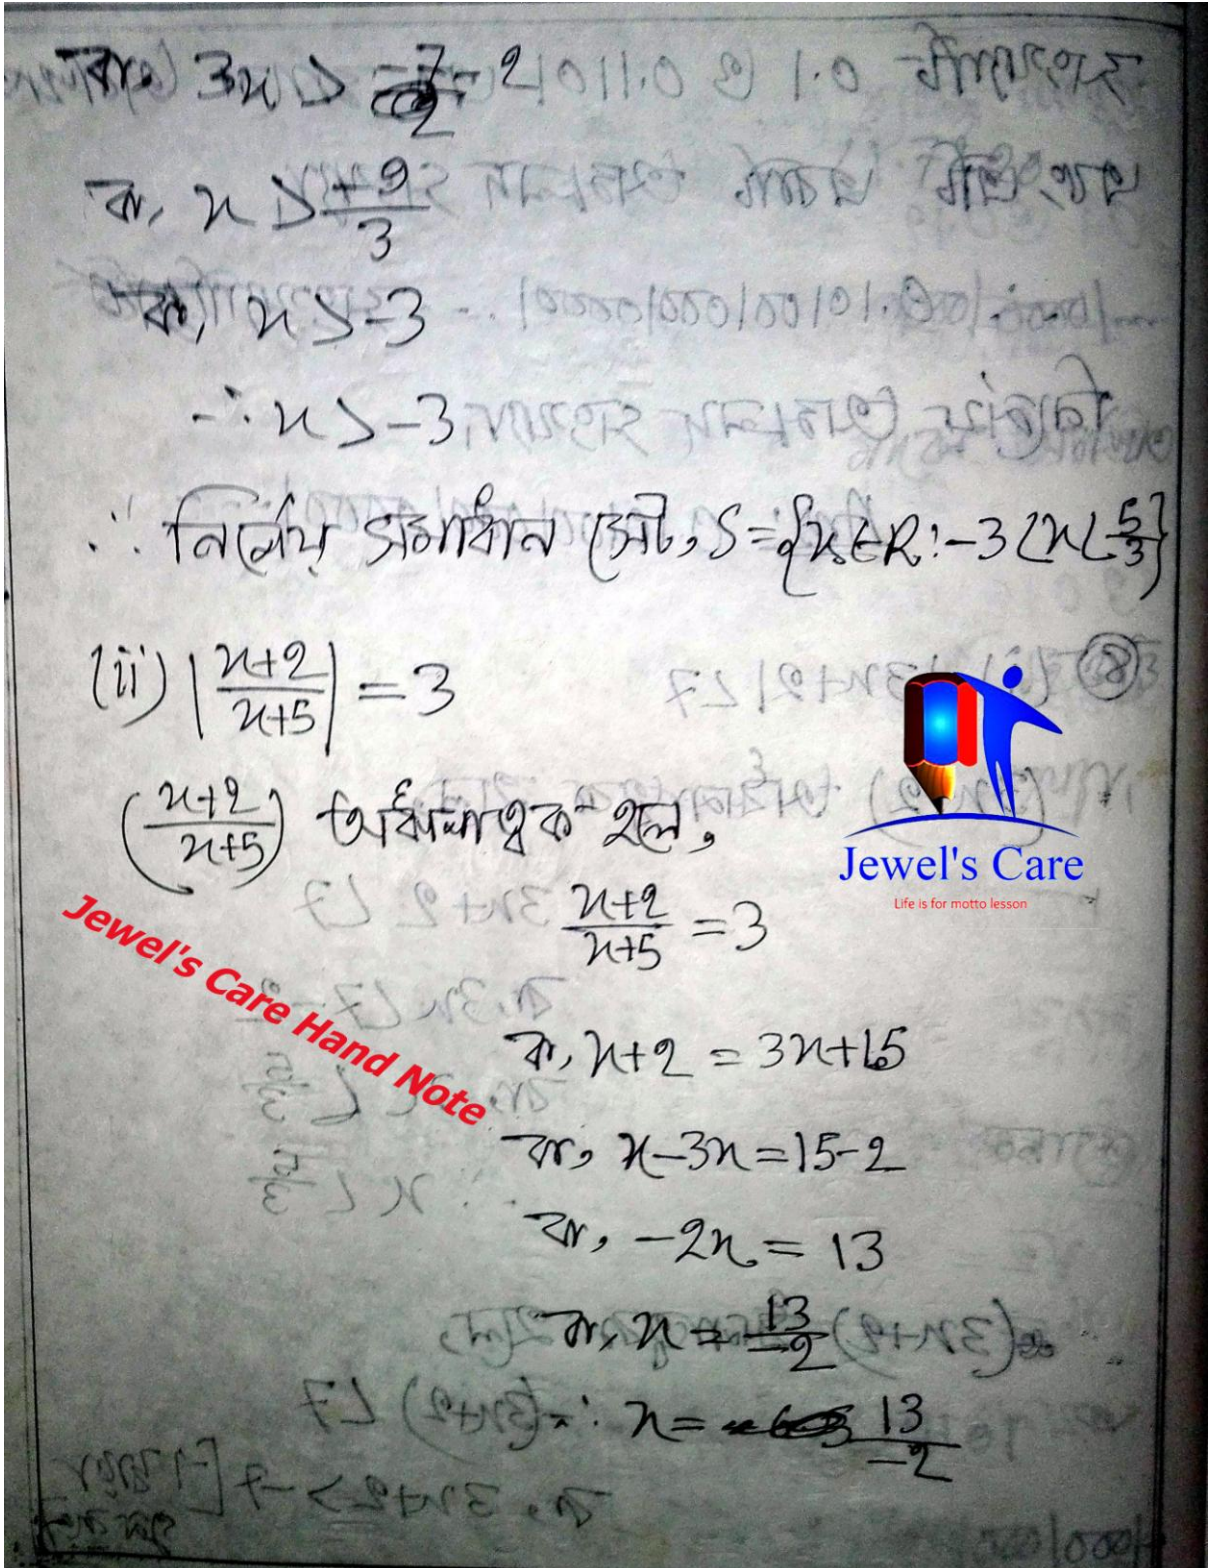 বা, 3x > -7-2
বা, x > +9/3
বা, x > -3
∴ x > -3
∴ নির্ণেয় সমাধান সেট, S = {x∈R : -3 < x < 5/3}
(ii) |x+2/x+5| = 3
(x+2/x+5) অঋণাত্বক হলে,
x+2/x+5 = 3
বা, x+2 = 3x+15
বা, x-3x = 15-2
বা, -2x = 13
বা, x = 13/-2
∴ x = 13/-2
Jewel's Care
Life is for motto lesson
Jewel's Care Hand Note